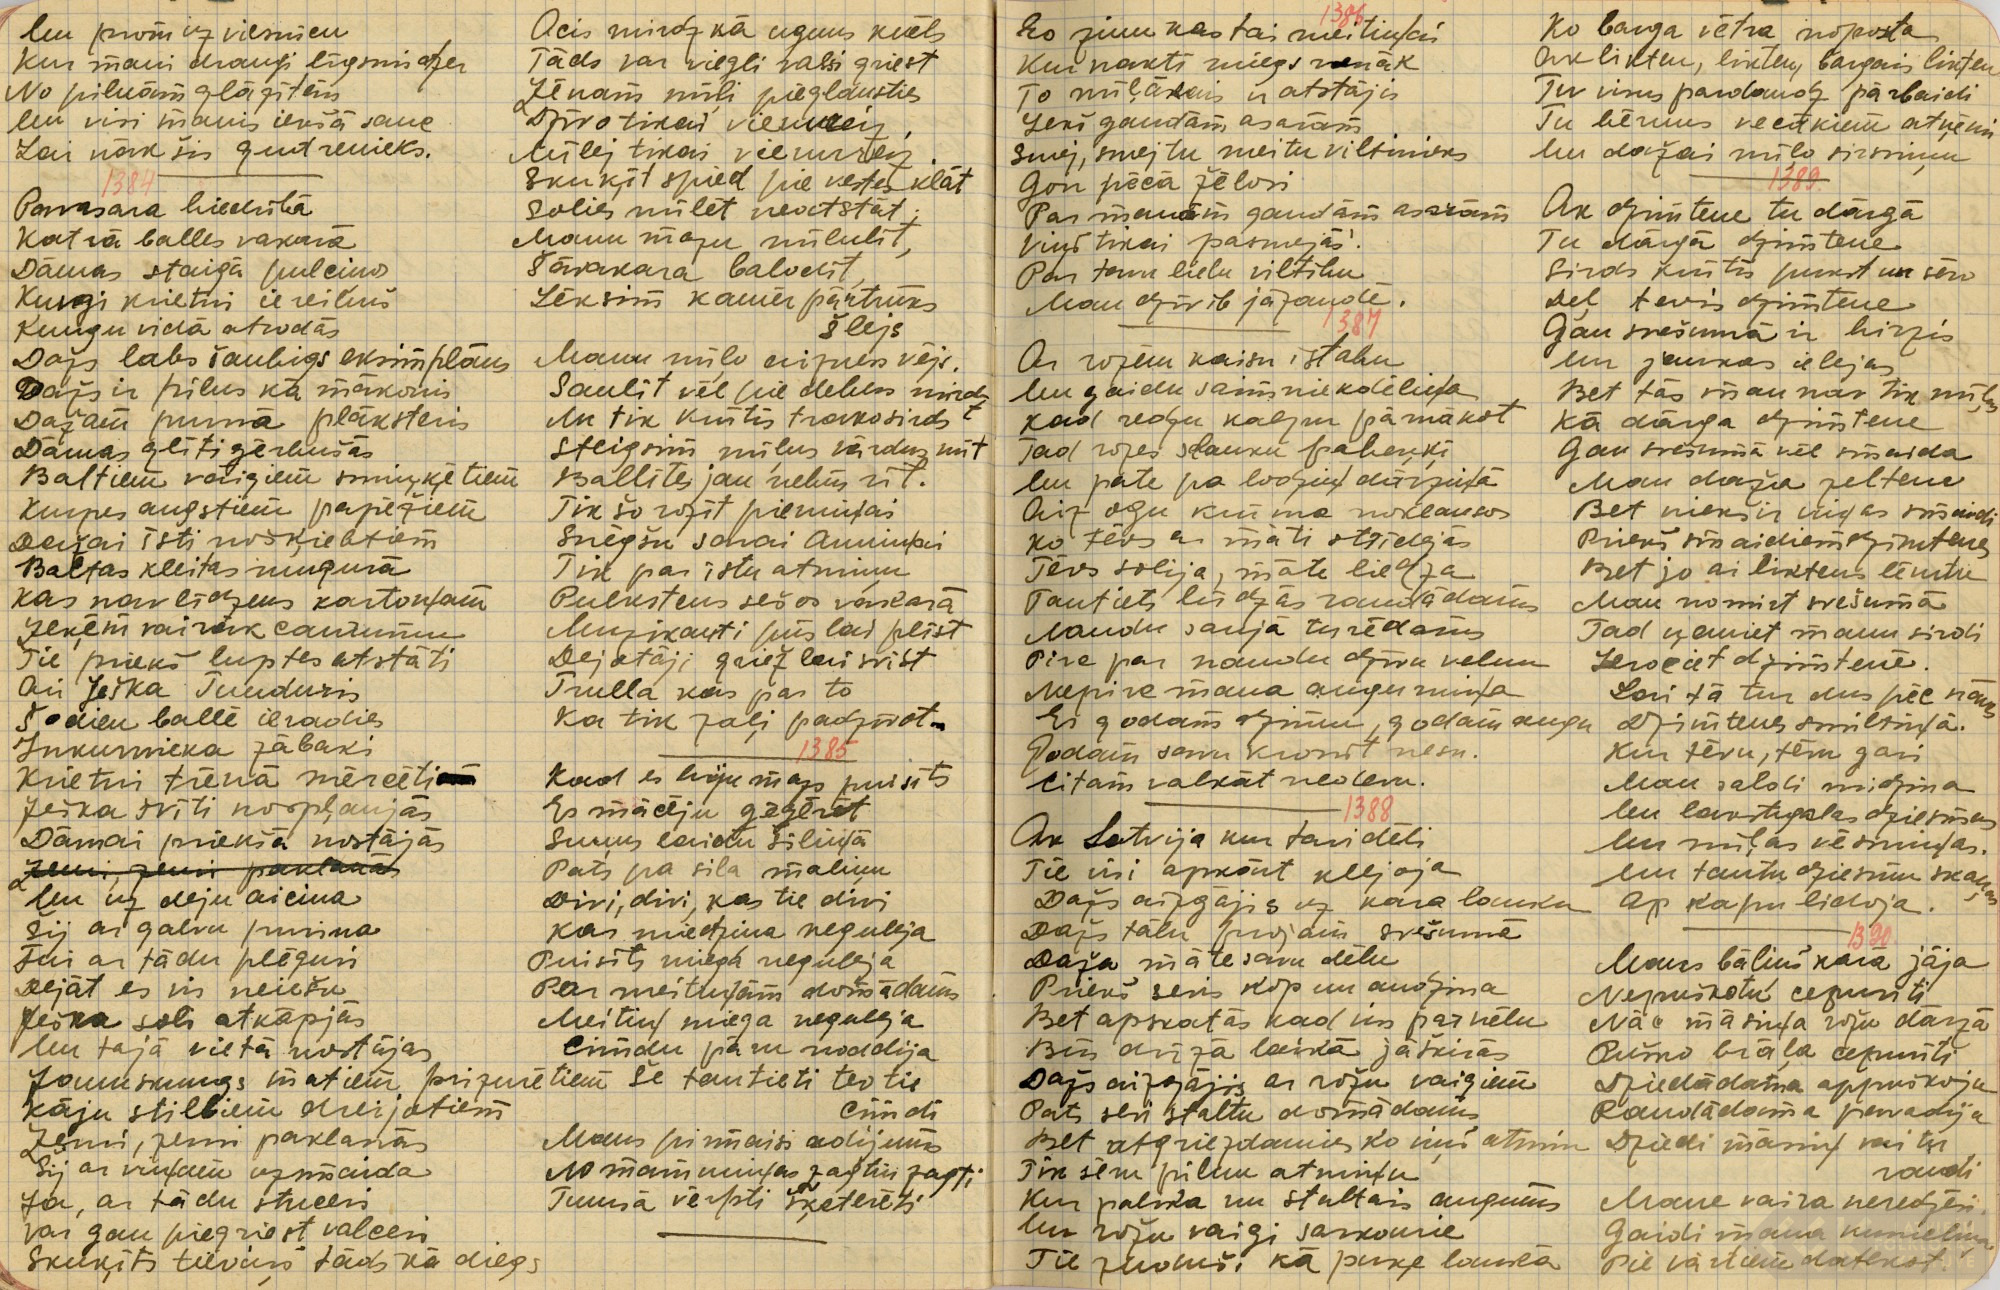 Un prom uz viesmien
Kur mani draugi līgsmi dzer
No pilnām glāzītēm
Un visi manis iekšā sauc
Lai nāk šis gudrenieks.
1384
Pavasara biedrībā
Katrā balles vakarā
Dāmas staigā pulciņo
Kungi krietni iereibuš
Kungu vidū atrodās
Dažs labs šaubīgs eksimplārs
Dažs ir pilns kā mākonis
Dažam purnā plāksteris
Dāmas glīti ģērbušās
Baltiem vaigiem smiņķētiem
Kurpes augstiem papēžiem
Dažai īsti nošķiebtiem
Baltas kleitas mugurā
Kas nav līdzens kartonām
Ješka Tunduris
Šodien ballē ieradies
Inkurnieka zābaki
Krietni trēnā mērcēti
Ješka svīti nospļaujās
Dāmai priekšā nostājās
Zemi, zemi paklanās
Un uz deju aicina
Šij ar galvu purina
Fui ar tādu plēguri
Dejāt es vis neiešu
Ješka soli atkāpjās
Un tajā vietā nostājas
Jaunskungs matiem prizurētiem
Kāju stilbiem dreijatiem
Zemi, zemi paklanās
Šij ar viņam uzmaida
Ja, ar tādu stuceri
Var gan piegriest valceri
Skuķīts tieviņš tāds kā diegs
Acis mirdz kā uguns kvēls
Tāds var viegli valsi griest
Zēnam mīļi pieglausties
Dzīvo tikai vienureiz,
Mīlej tikai vienureiz.
Skuķīt spied pie vestes klāt
Solies mīlēt neatstāt,
Manu mazu mīlulīt,
Šāvakara balodīt,
Lēksim kamēr pārtrūks
šlejs
Manu mīlo cipress vējs.
Saulīt vēl pie debess mirdz
Un tik kūtis trakosirds
Steigsim mīļus vārdus mīt
Ballītes jau nebūs rīt.
Tik šo rozīt piemiņai
Sniegšu savai Anniņai
Tik par īstu atmiņu
Pulkstens sešos vakarā
Muzikanti pūš lai plīst
Dejotāji griež lai svīst
Trulla kas par to
Ka tik zaļi padzīvot.
1385
Kad es biju mazs puisīts
Es mācēju gēģerēt
Suņus laidu šiliņā
Pats pa sila maliņu
Divi, divi, kas tie divi
Kas miedziņa neguleja
Puisīts miega neguleja
Par meitiņām domādams
Meitiņ miega neguleja
Cimdu pāru noadija
Še tautieti tev tie
cimdi
Mans pirmaisi adijums
No māmmiņas zagtin zagti
Tumsā vērpti šķeterēti
1386
Es zinu kas tai meitiņai
Kur nakti miegs nenāk
To mīļākais ir atstājis
Iekš gaužām asarām
Smej, smej tu meitu viltnieks
Gon pēcā žēlosi
Par manām gaužām asarām
Viņš tikai pasmejās.
Par tavu lielu viltību
Man dzīvīb jāzaudē.
1387
Ar rozēm kaisu istabu
Un gaidu saimniekdēliņa
Kad redzu kalpu pārnākot
Tad rozes slauku pabeņķi
Un pate pa lodziņ dārziņā
Aiz ogu krūma noklausos
Ko tēvs ar māti strīdējās
Tēvs solija, māte liedza
Tautiets lūdzās raudādams
Naudu saujā turēdams
Pirc par naudu dzīvu velnu
Nepirc mana augumiņa
Es godam dzimu, godam augu
Godam savu kronīt nesu.
Citam valkāt nedevu.
1388
Ak Latvija kur tavi dēli
Tie visi apkārt klejoja
Dažs aizgājis uz kara lauku
Dažs tālu projām svešumā
Daža māte savu dēlu
Priekš sevis kop un audzina
Bet apskatās kad viņ pārvēlu
Būs drīzā laikā jāškirās
Dažs aizgājis ar rožu vaigiem
Pats sevi staltu domādams
Bet atgriezdamies ko viņš atmin
Tik sēru pilnu atmiņu
Kur palika un staltais augums
Un rožu vaigi sarkanie
Tie zuduš, kā puķe laukā
Ko barga vētra noposta
Ak liktens, liktens, bargais liktens
Tu visus pasdaudz pārbaidi
Tu bērnus vecākiem atņēmi
Un dažai mīļo sirsniņu
1389
Ak dzimtene tu dārgā
Tu dārgā dzimtene
Sirds krūtīs pukst un sēro
Dēļ tevis dzimtene
Gan svešumā ir birzis
Un jaukas ielejas
Bet tās man nav tik mīļas
Kā dārga dzimtene
Gan svešumā vēl smaida
Man daža zeltene
Bet nieks ir viņas smaidi
Priekš smaidiem dzimtenes
Bet jo ai liktens lēmtu
Man nomirt svešumā
Tad uzaniet manu sirdi
Ierociet dzimtenē.
Lai tā tur dus pēc nāves
Dzimtenes smiltiņā.
Kur tēvu, tēvu gari
Man saldi midzina
Un lakstugalas dziesmas
Un mīļas vēsmiņas.
Un tautu dziesmu skaņas
Ap kapu lidoja.
1390
Mans bāliņš karā jāja
Nepuškotu cepurīti
Nāc māsiņa rožu dārzā
Puško brāļa cepurīti
Dziedādama appuškoja
Raudādama pavadija
Dziedi māsiņ vai tu
raudi
Mane vaira neredzēsi.
Gaidi mana kumeliņa
Pie vārtiem datekot.